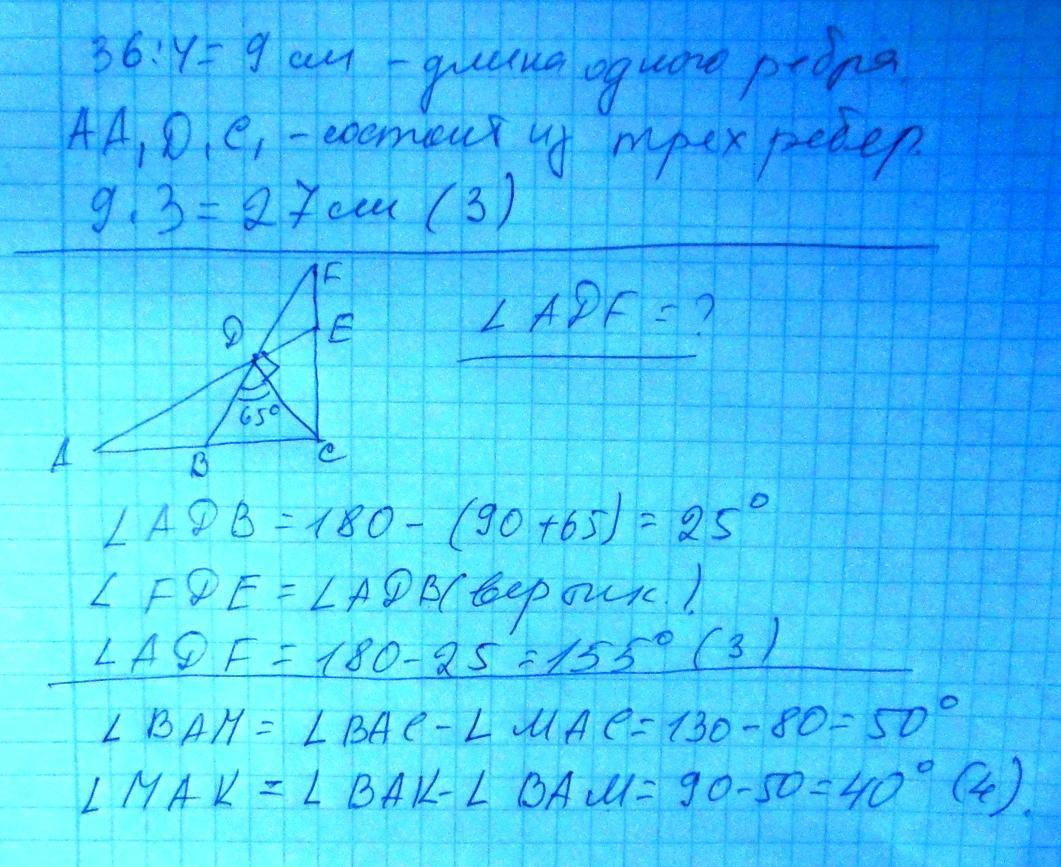 36:4= 9 см - длина одного ребра.
AA₁D₁C₁ - состоит из трех ребер.
9·3=27см (3)
F
D
E
∠ADF=?
65°
A
B
C
∠ADB=180-(90+65)=25°
∠FDE=∠ADB(вертик.)
∠ADF=180-25=155° (3)
∠BAM=∠BAC-∠MAC=130-80=50°
∠MAK=∠BAK-∠BAM=90-50=40° (4).